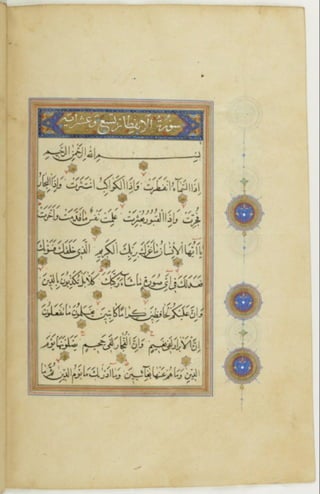 سورة الانفطار تسع وعشر اية
بسم الله الرحمن الرحيم
اذا السماء انفطرت واذا الكواكب انتثرت واذا البحار
فجرت واذا القبور بعثرت علمت نفس ما قدمت واخرت
يا ايها الانسان ما غرك بربك الكريم الذى خلقك فسويك
فعدلك فى اى صورة ما شاء ركبك كلا بل تكذبون بالدين
وان عليكم لحافظين كراما كاتبين يعلمون ما تفعلون
ان الابرار لفى نعيم وان الفجار لفى جحيم يصلونها يوم
الدين وما هم عنها بغائبين وما ادريك ما يوم الدين ثم ما